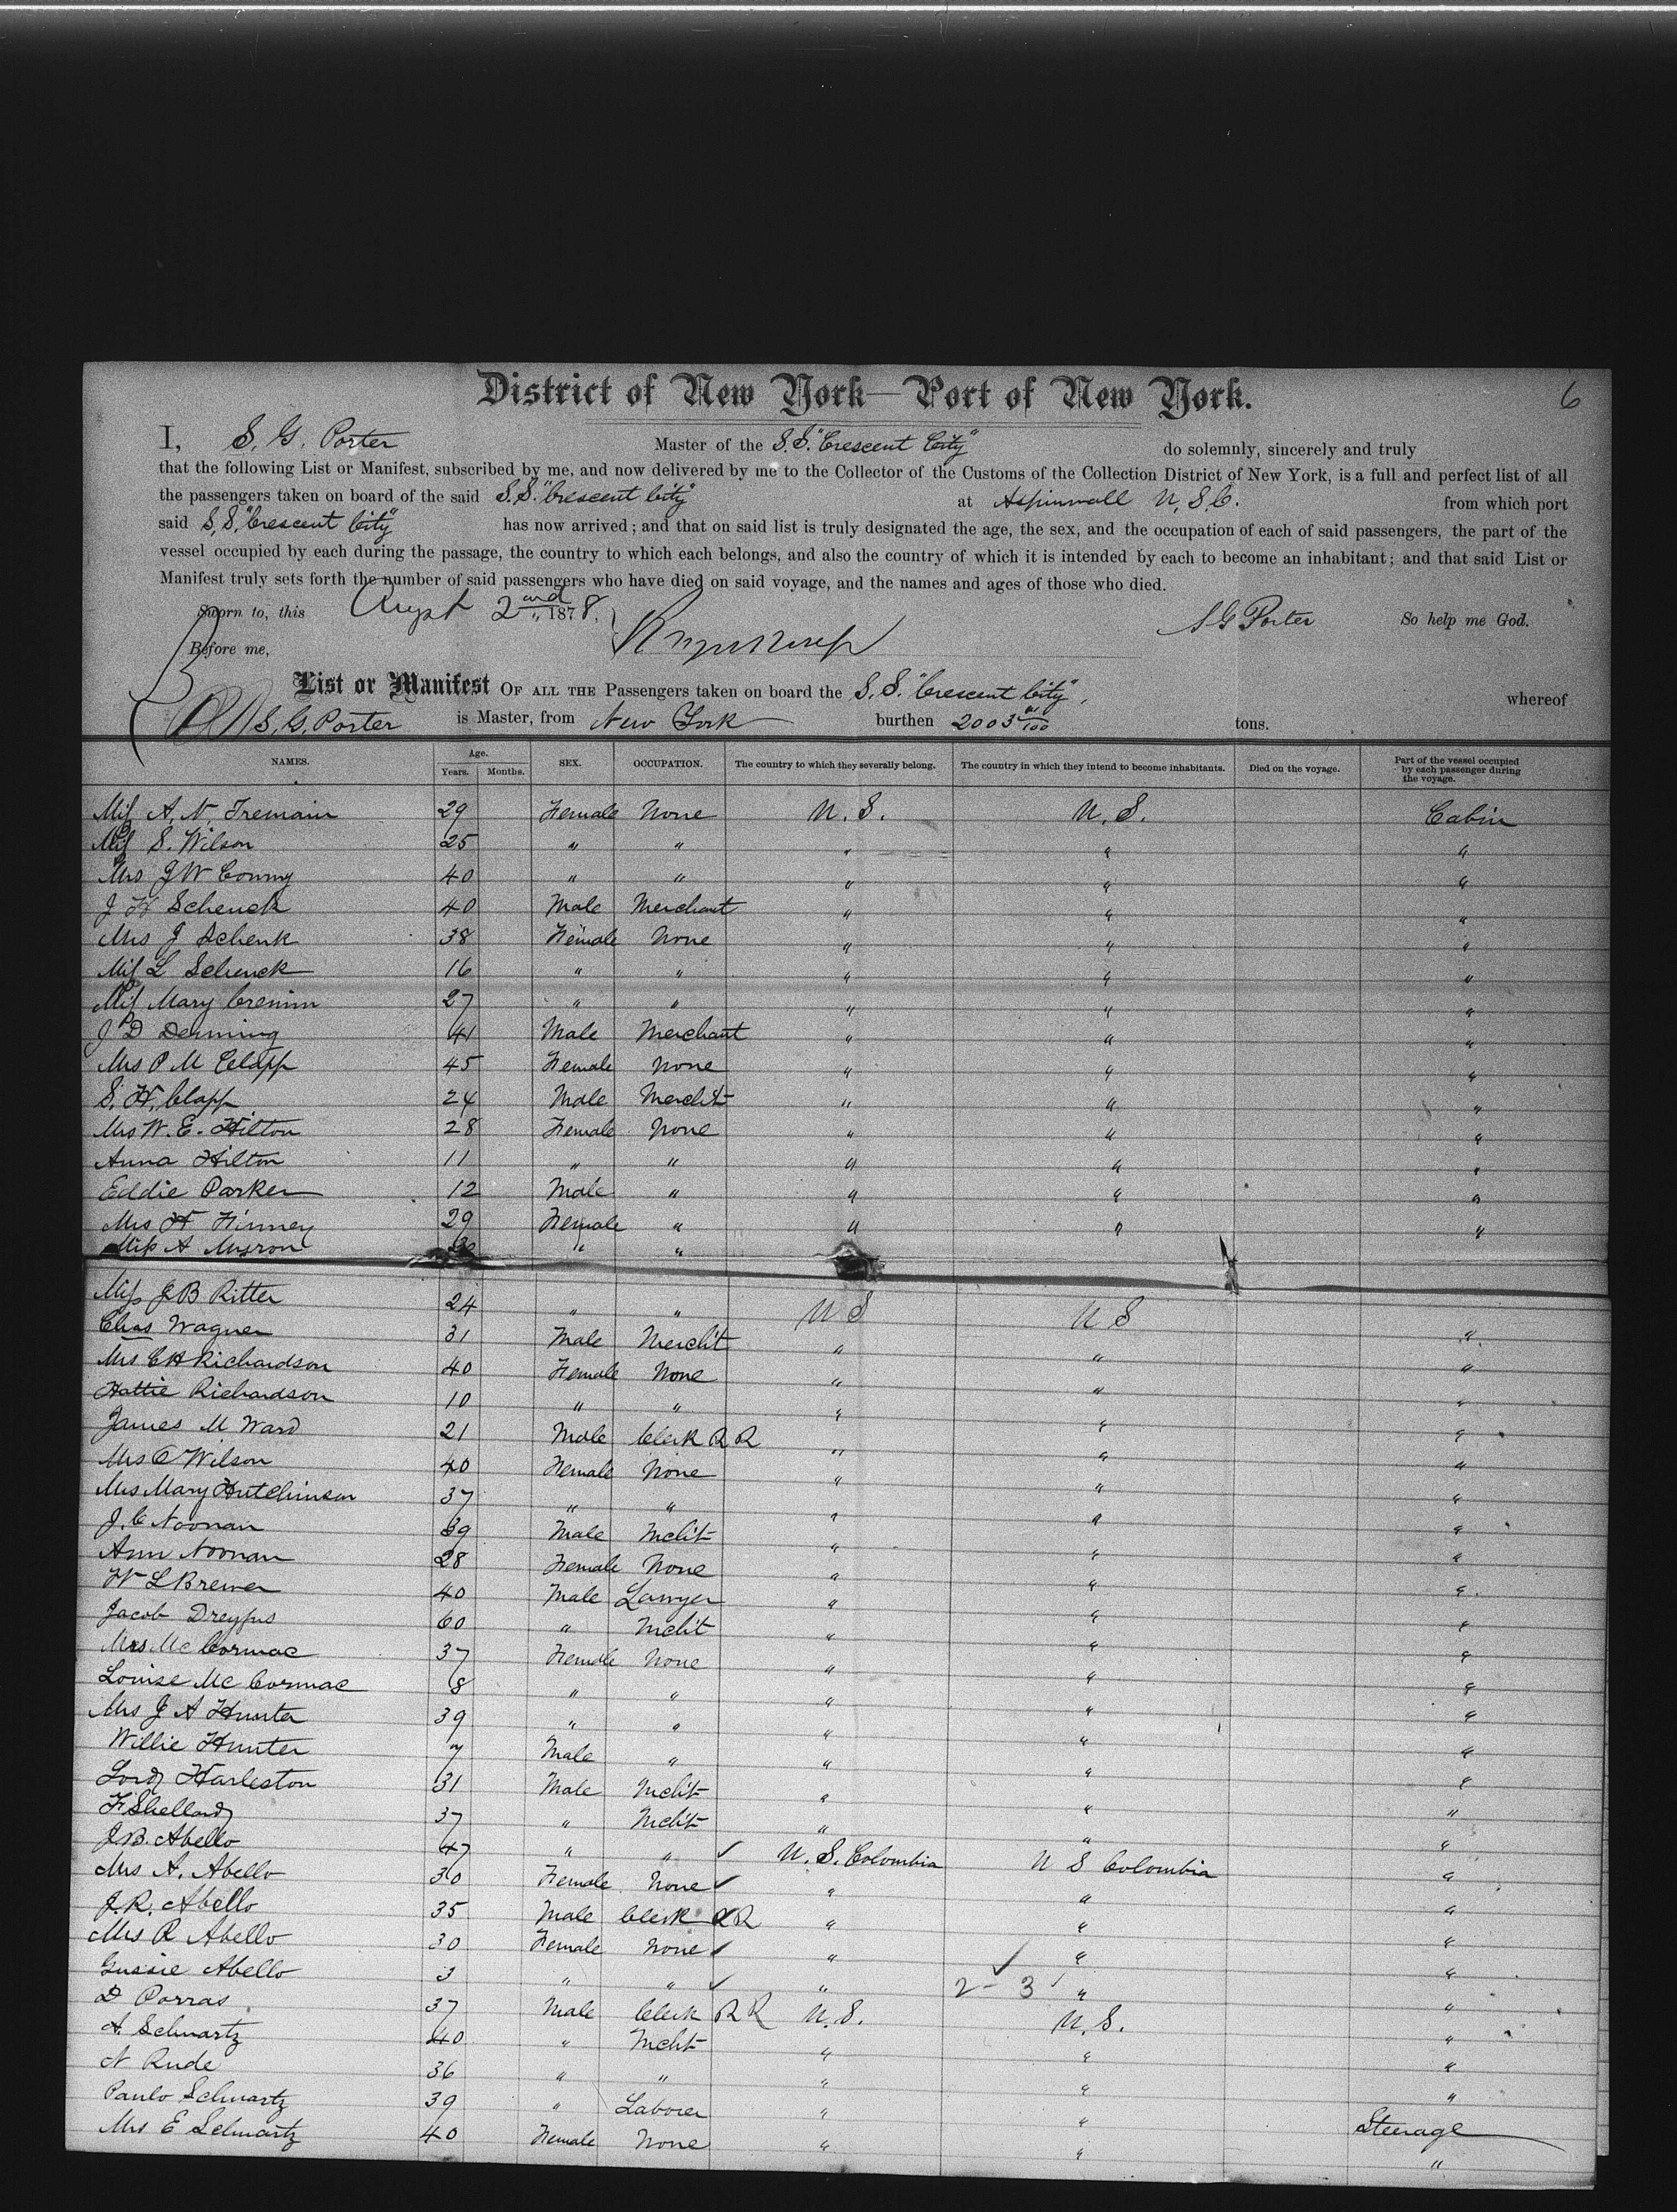 6
District of New York—Port of New York.
I, S. G. Porter Master of the S.S. "Crescent City" do solemnly, sincerely and truly
that the following List or Manifest, subscribed by me, and now delivered by me to the Collector of the Customs of the Collection District of New York, is a full and perfect list of all
the passengers taken on board of the said S.S. "Crescent City" at Aspinwall U.S.C. from which port
said S.S. "Crescent City" has now arrived; and that on said list is truly designated the age, the sex, and the occupation of each of said passengers, the part of the
vessel occupied by each during the passage, the country to which each belongs, and also the country of which it is intended by each to become an inhabitant; and that said List or
Manifest truly sets forth the number of said passengers who have died on said voyage, and the names and ages of those who died.
Sworn to, this August 2nd 1878. S G Porter So help me God.
Before me,
List or Manifest OF ALL THE Passengers taken on board the S.S. "Crescent City", whereof
S. G. Porter is Master, from New York burthen 2003 /100 tons.
NAMES. Age. Years. Months. SEX. OCCUPATION. The country to which they severally belong. The country in which they intend to become inhabitants. Died on the voyage. Part of the vessel occupied by each passenger during the voyage.
Miss A. N. Tremain 29 Female None U.S. U.S. Cabin
Miss S. Wilson 25 " " " " "
Mrs J W 40 " " " " "
J H Schenck 40 Male Merchant " " "
Mrs J Schenk 38 Female None " " "
Miss L Schenck 16 " " " " "
Miss Mary 27 " " " " "
J D Denming 41 Male Merchant " " "
Mrs P M Clapp 45 Female None " " "
S. H. Clapp 24 Male Mercht " " "
Mrs W. E. Hilton 28 Female None " " "
Anna Hilton 11 " " " " "
Eddie Parker 12 Male " " " "
Mrs H Finney 29 Female " " " "
Miss A " "
Miss J B Ritter 24 " " U S U S "
Chas Wagner 31 Male Mercht " " "
Mrs C H Richardson 40 Female None " " "
Hattie Richardson 10 " " " " "
James M Ward 21 Male Clerk R R " " "
Mrs O Wilson 40 Female None " " "
Mrs Mary Hutchinson 37 " " " " "
J. C Noonan 39 Male Mcht " " "
Ann Noonan 28 Female None " " "
W L Brewer 40 Male Lawyer " " "
Jacob Dreyfus 60 " Mcht " " "
Mrs McCormac 37 Female None " " "
Louise McCormac 8 " " " " "
Mrs J A Hunter 39 " " " " "
Willie Hunter 7 Male " " " "
Harleston 31 Male Mcht " " "
F Shellard 37 " Mcht " " "
J B. Abello 47 " " ✓ U. S. Colombia U S Colombia "
Mrs A. Abello 30 Female None ✓ " " "
J. R. Abello 35 Male Clerk R R " " "
Mrs R Abello 30 Female None ✓ " ✓ " "
Gussie Abello 3 " " ✓ " 2 - 3 " "
D Porras 37 Male Clerk R R U.S. U.S. "
A. Schwartz 40 " Mcht " " "
N Rude 36 " " " " "
Paulo Schwartz 39 " Laborer " " Steerage
Mrs E Schwartz 40 Female None " " "